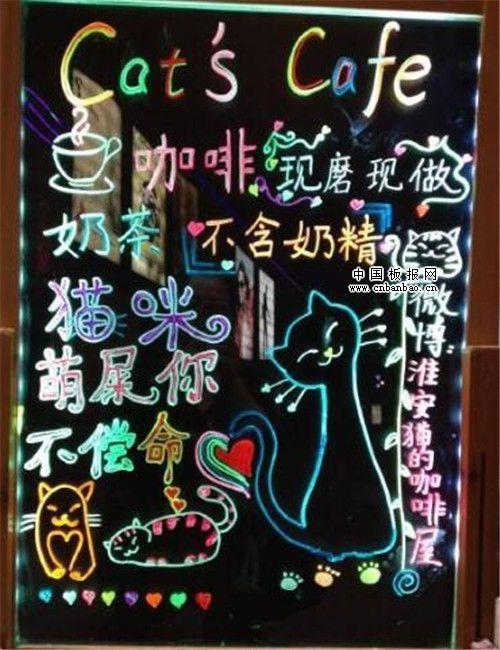 Cat's Cafe
咖啡 现磨现做
奶茶 不含奶精
猫咪
萌屎你
不偿命
微博:淮安猫的咖啡屋
中国板报网
www.cnbanbao.cn